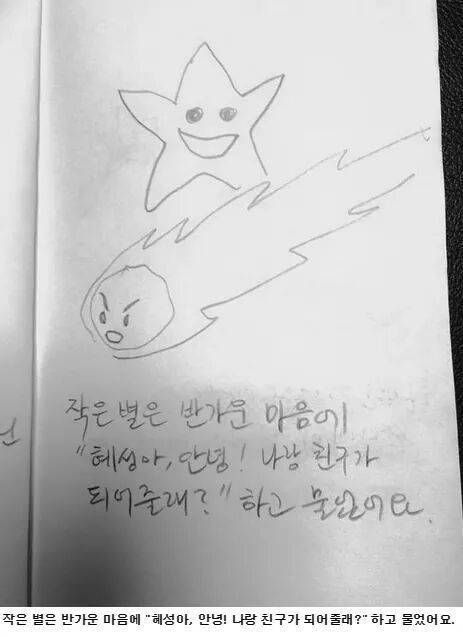 작은 별은 반가운 마음에
"혜성아, 안녕! 나랑 친구가
되어줄래?" 하고 물었어요.
작은 별은 반가운 마음에 "혜성아, 안녕! 나랑 친구가 되어줄래?" 하고 물었어요.